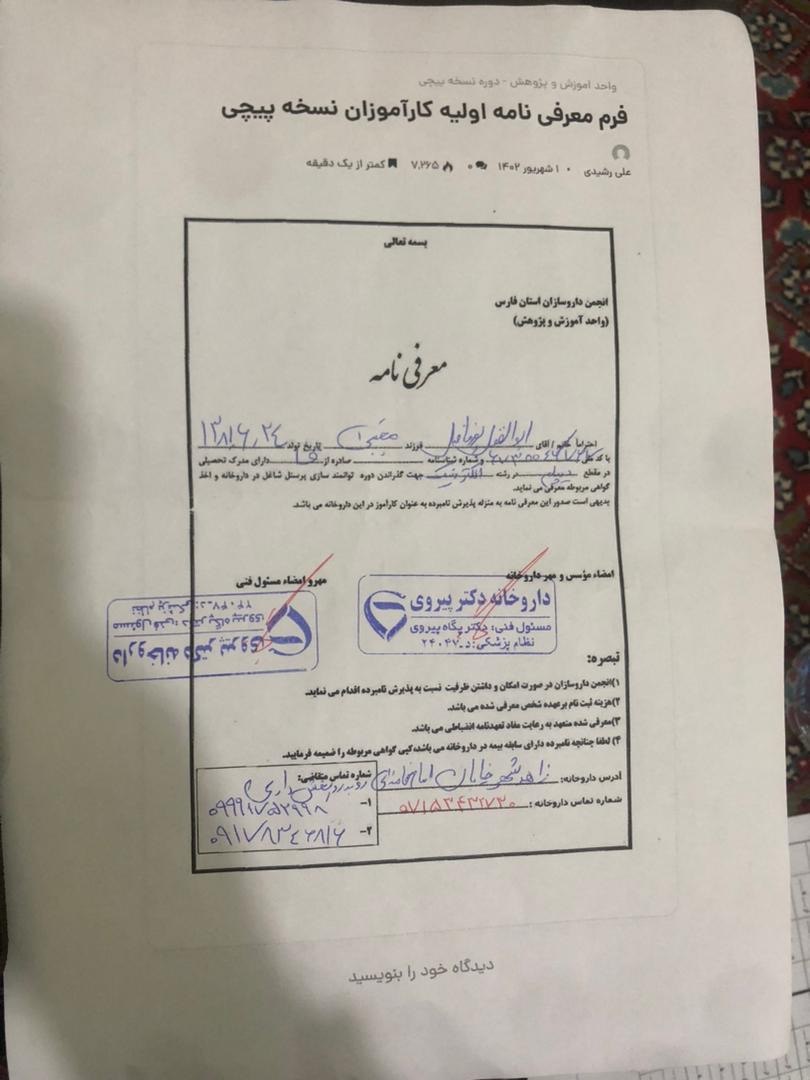 واحد آموزش و پژوهش - دوره نسخه پیچی
فرم معرفی نامه اولیه کارآموزان نسخه پیچی
علی رشیدی • ۱ شهریور ۱۴۰۲ ۰ ۷,۲۶۵ کمتر از یک دقیقه
بسمه تعالی
انجمن داروسازان استان فارس
(واحد آموزش و پژوهش)
معرفی نامه
احتراماً خانم / آقای ابوالفضل فرزند مجتبی تاریخ تولد ۱۳۸۱,۶,۲۴
با کد ملی و شماره شناسنامه صادره از دارای مدرک تحصیلی
در مقطع دیپلم در رشته الکترونیک جهت گذراندن دوره توانمند سازی پرسنل شاغل در داروخانه و اخذ
گواهی مربوطه معرفی می نماید.
بدیهی است صدور این معرفی نامه به منزله پذیرش نامبرده به عنوان کارآموز در این داروخانه می باشد.
امضاء مؤسس و مهر داروخانه
مهر و امضاء مسئول فنی
داروخانه دکتر پیروی
مسئول فنی: دکتر پگاه پیروی
نظام پزشکی: د-۲۴۰۴۷
داروخانه دکتر پیروی
مسئول فنی: دکتر پگاه پیروی
نظام پزشکی: د-۲۴۰۴۷
تبصره:
۱)انجمن داروسازان در صورت امکان و داشتن ظرفیت نسبت به پذیرش نامبرده اقدام می نماید.
۲)هزینه ثبت نام برعهده شخص معرفی شده می باشد.
۳)معرفی شده متعهد به رعایت مفاد تعهدنامه انضباطی می باشد.
۴) لطفا چنانچه نامبرده دارای سابقه بیمه در داروخانه می باشد،کپی گواهی مربوطه را ضمیمه فرمایید.
آدرس داروخانه: زاهدشهر خیابان امام خامنه‌ای روبروی
شماره تماس داروخانه : ۰۷۱۵۳۴۳۲۷۲۰
شماره تماس متقاضی:
۱-
۲- ۰۹۱۷۸۳۴۶۸۱۶
دیدگاه خود را بنویسید